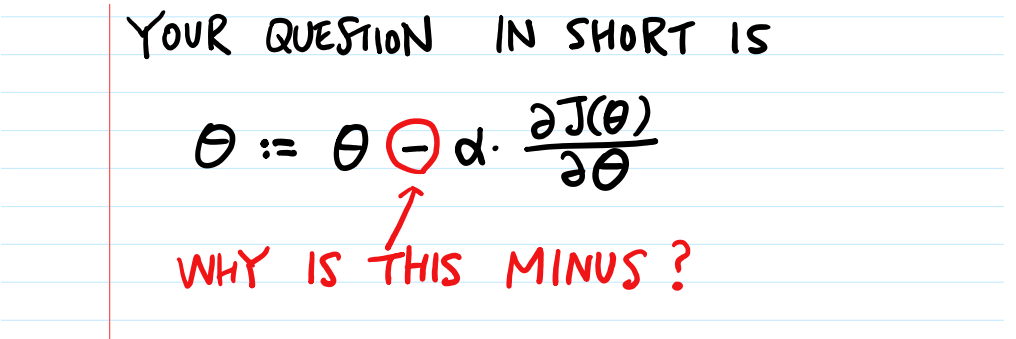 YOUR QUESTION IN SHORT IS
θ := θ - α · ∂J(θ)/∂θ
WHY IS THIS MINUS?